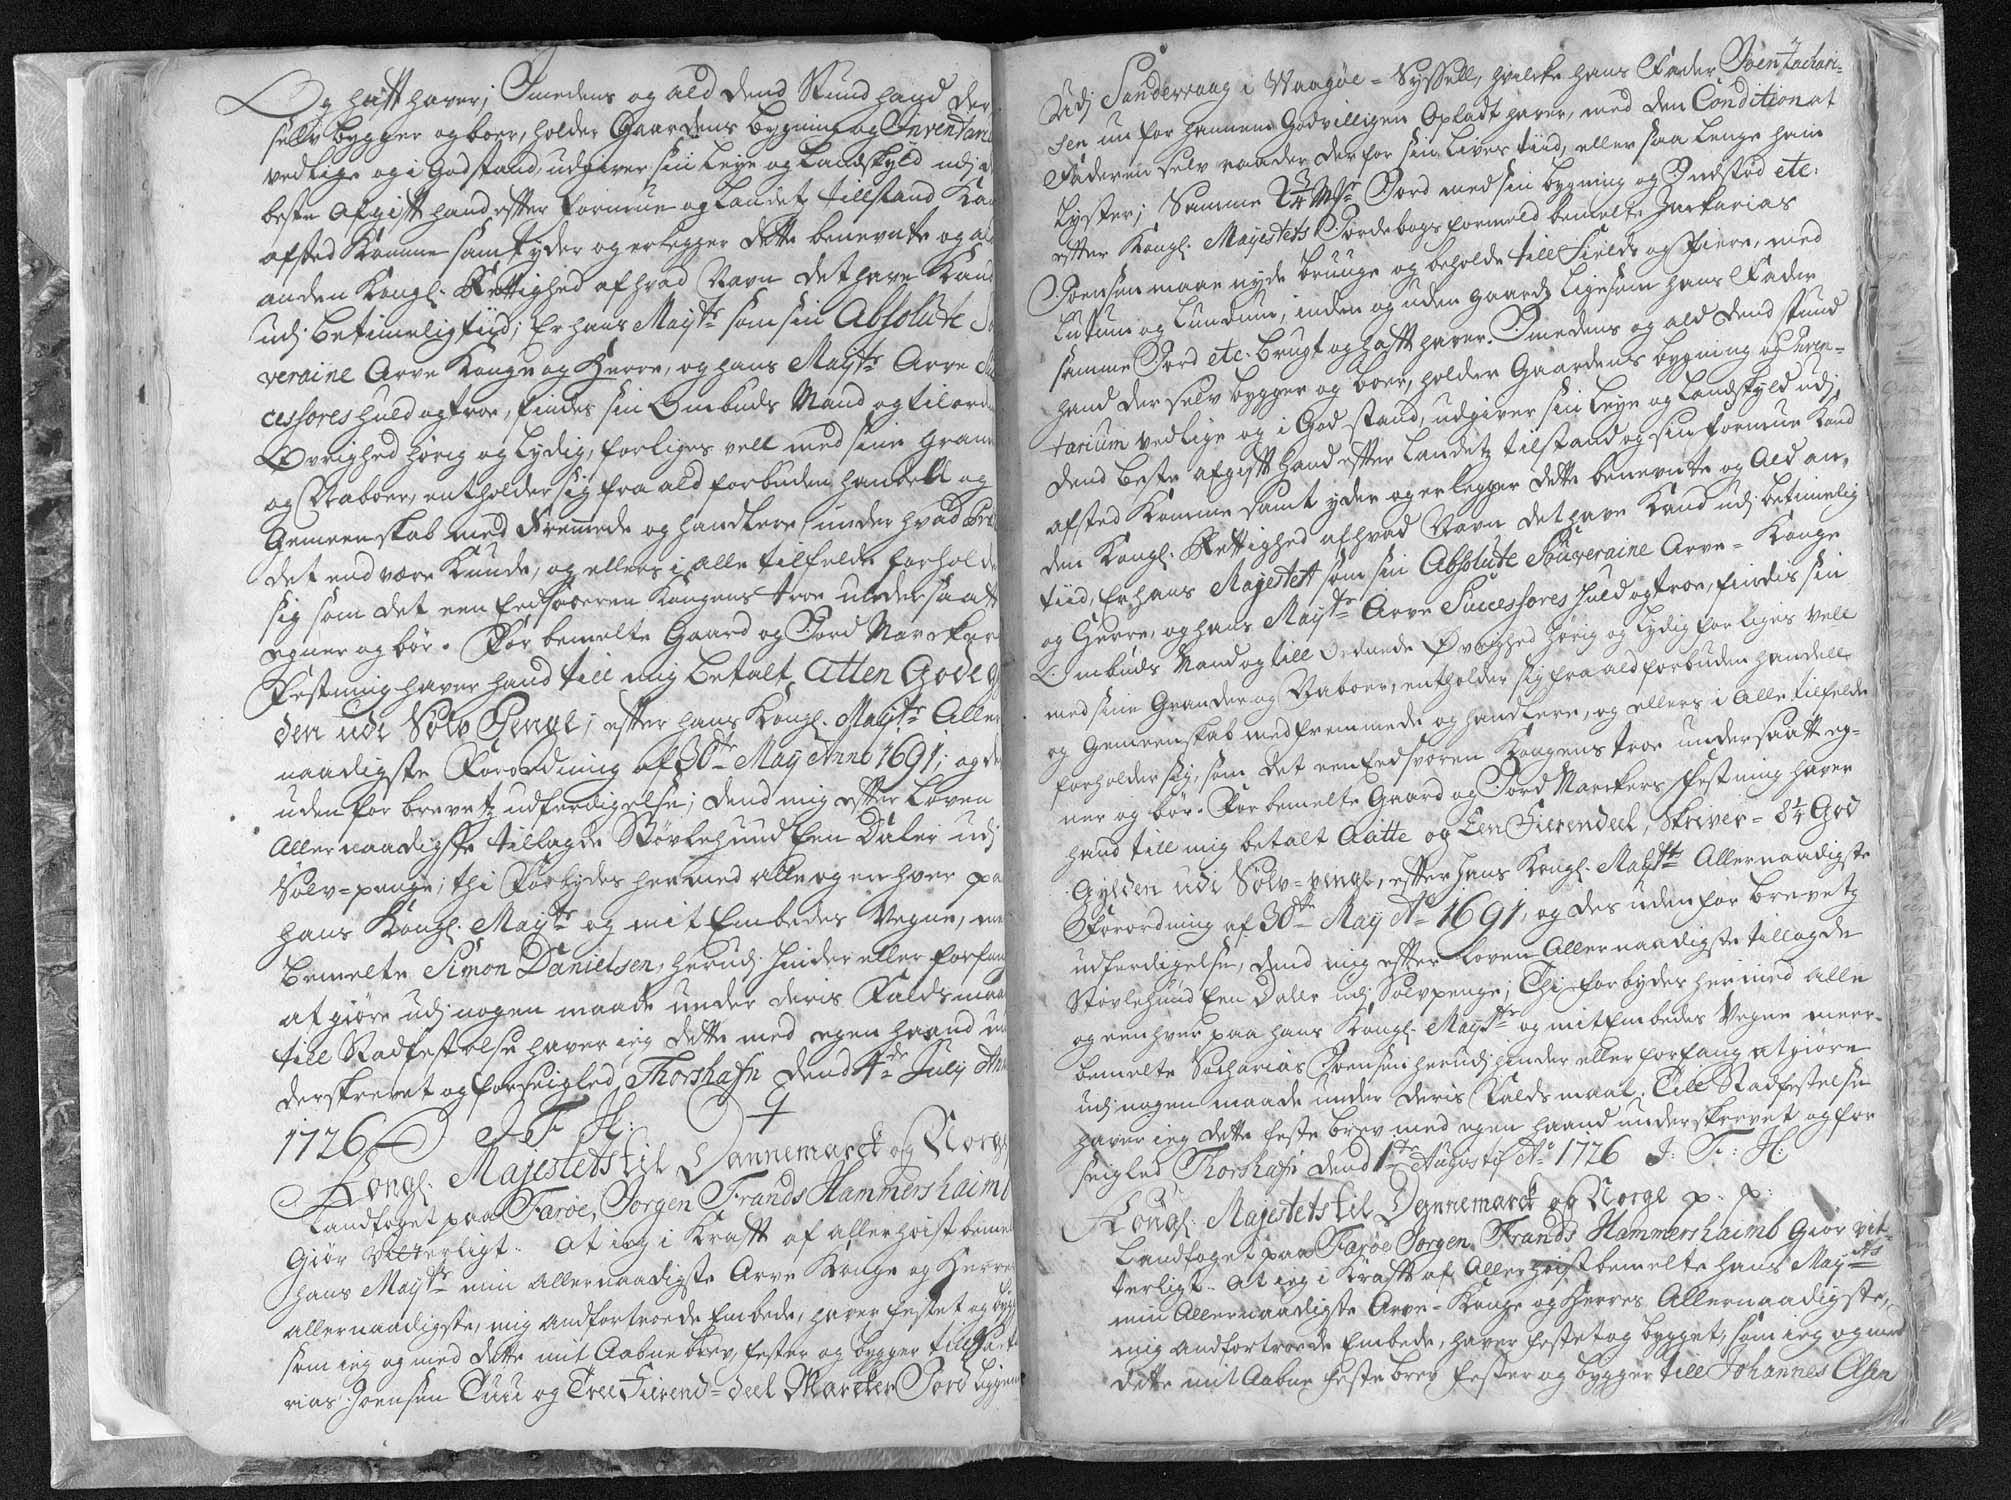 Og hafft haver; Imedens og ald dend Stund hand der
selv bygger og boer, holder Gaardens bygning og Inventari
vedlige og i God stand, udgiver sin Leye og Landskyld udj d
beste Afgifft hand efter formue og Landetz tillstand Ka
afsted Komme samt yder og erlegger dette benevnte og al
anden Kongl. Rettighed af hvad Navn det have Kand
udj betimelig tiid; Er hans Mayts som sin Absolute So
veraine Arve Konge og Herre, og hans Mayts Arve Suc
cessores huld og troe, findes sin Ombuds Mand og tilord
Øvrighed hørig og lydig, forliges vell med sine Grann
og Naboer, entholder sig fra ald forbuden handell og
Gemeenskab med Fremmede og handlere under hvad Præ
det end være Kunde, og ellers i alle tilfelde forholde
sig som det een Eedsvoren Kongens troe undersaatt
egner og bør. For bemelte Gaard og Jord Marckers
Festning haver hand till mig betalt Atten Gode gy
den udi Sølv Penge; efter hans Kongl. Mayts Aller
naadigste Forordning af 30te Maij Anno 1691; og de
uden for brevetz udferdigelse; dend mig efter Loven
Allernaadigste tillagde Støvlehund Een Daler udj
Sølv-penge; thi Forbydes hermed alle og en hver pa
hans Kongl. Mayts og mit Embedes Vegne, me
bemelte Simon Danielsen, herudj hinder eller forfang
at giøre udj nogen maade under deris Falds maal
till Stadfestelse haver ieg dette med egen haand un
derskrevet og forseigled Thorshafn dend 4de Julij An
1726 J F H:
Kongl. Majestets til Dannemarck og Norge
Landfoget paa Farøe, Jørgen Frands Hammershaimb
Giør vitterligt. At ieg i Krafft af allerhøist beme
hans Mayts min allernaadigste Arve Konge og Herres
allernaadigste, mig andfortroede Embede, haver festet og byg
som ieg og med dette mit Aabne brev, fester og bygger till Sacha
rias Joensen Tuu og Tree Fierend-deel Marcker Jord liggend
Udj Sandevaag i Waagøe-Syssell, hvilcke hans Fader Joen Zachari-
sen nu for hannem Godvilligen Opladt haver, med den Condition at
Faderen selv raader der for sin Lives tiid, eller saa lenge ham
lyster; Samme 2¾ Mr Jord med sin bygning og Indstød etc.
efter Kongl. Mayestets Jordebogs formeld bemelte Zacharias
Joensen maae nyde bruuge og beholde till Fields og Fiere, med
Lutum og Lundum, inden og uden gaards ligesom hans Fader
samme Jord etc. brugt og hafft haver. Imedens og ald dend stund
hand der selv bygger og boer, holder Gaardens bygning og Inven-
tarium vedlige og i God stand, udgiver sin Leye og Landskyld udj
dend beste afgifft hand efter Landetz tilstand og sin formue Kand
afsted Komme samt yder og erlegger dette benevnte og Ald an-
den Kongl. Rettighed af hvad Navn det have Kand udj betimelig
tiid, Er hans Majestett som sin Absolute Souveraine Arve-Konge
og Herre, og hans Mayts Arve Successores huld og troe, findis sin
Ombuds Mand og till Ordnede Øvrighed hørig og lydig forliges Vell
med sine Grander og Naboer, entholder sig fra ald forbuden handell
og Gemeenskab med fremmede og handlere, og ellers i Alle tilfelde
forholder sig, som det een Eedsvoren Kongens troe undersaatt eg-
ner og bør. For bemelte Gaard og Jord Marckers Festning haver
hand till mig betalt Aatte og Een Fierendeel, Skriver-8¼ God
Gylden udi Sølv-penge, efter hans Kongl. Maytts Allernaadigste
Forordning af 30te Maij Ao 1691, og des uden for brevetz
udferdigelse, dend mig efter Loven Allernaadigste tillagde
Støvlehund Een Daler udj Sølvpenge; Thi forbydes hermed alle
og een hver paa hans Kongl. Mayts og mit Embedes Vegne meer-
bemelte Sacharias Joensen herudj hinder eller forfang at giøre
udj nogen maade under deris Falds maal. Till Stadfestelse
haver ieg dette feste brev med egen haand underskrevet og for
seigled Thorshafn dend 1te Augustij Ao 1726 J: F: H:
Kongl. Majestets til Dannemarck og Norge p. p:
Landfoget paa Farøe Jørgen Frands Hammershaimb Giør vit-
terligt. At ieg i Krafft af Allerhøist bemelte hans Mayts
min Allernaadigste Arve-Konge og Herres Allernaadigste,
mig andfortroede Embede, haver festet og bygget, som ieg og med
dette mit Aabne feste brev fester og bygger till Johannes Olsen